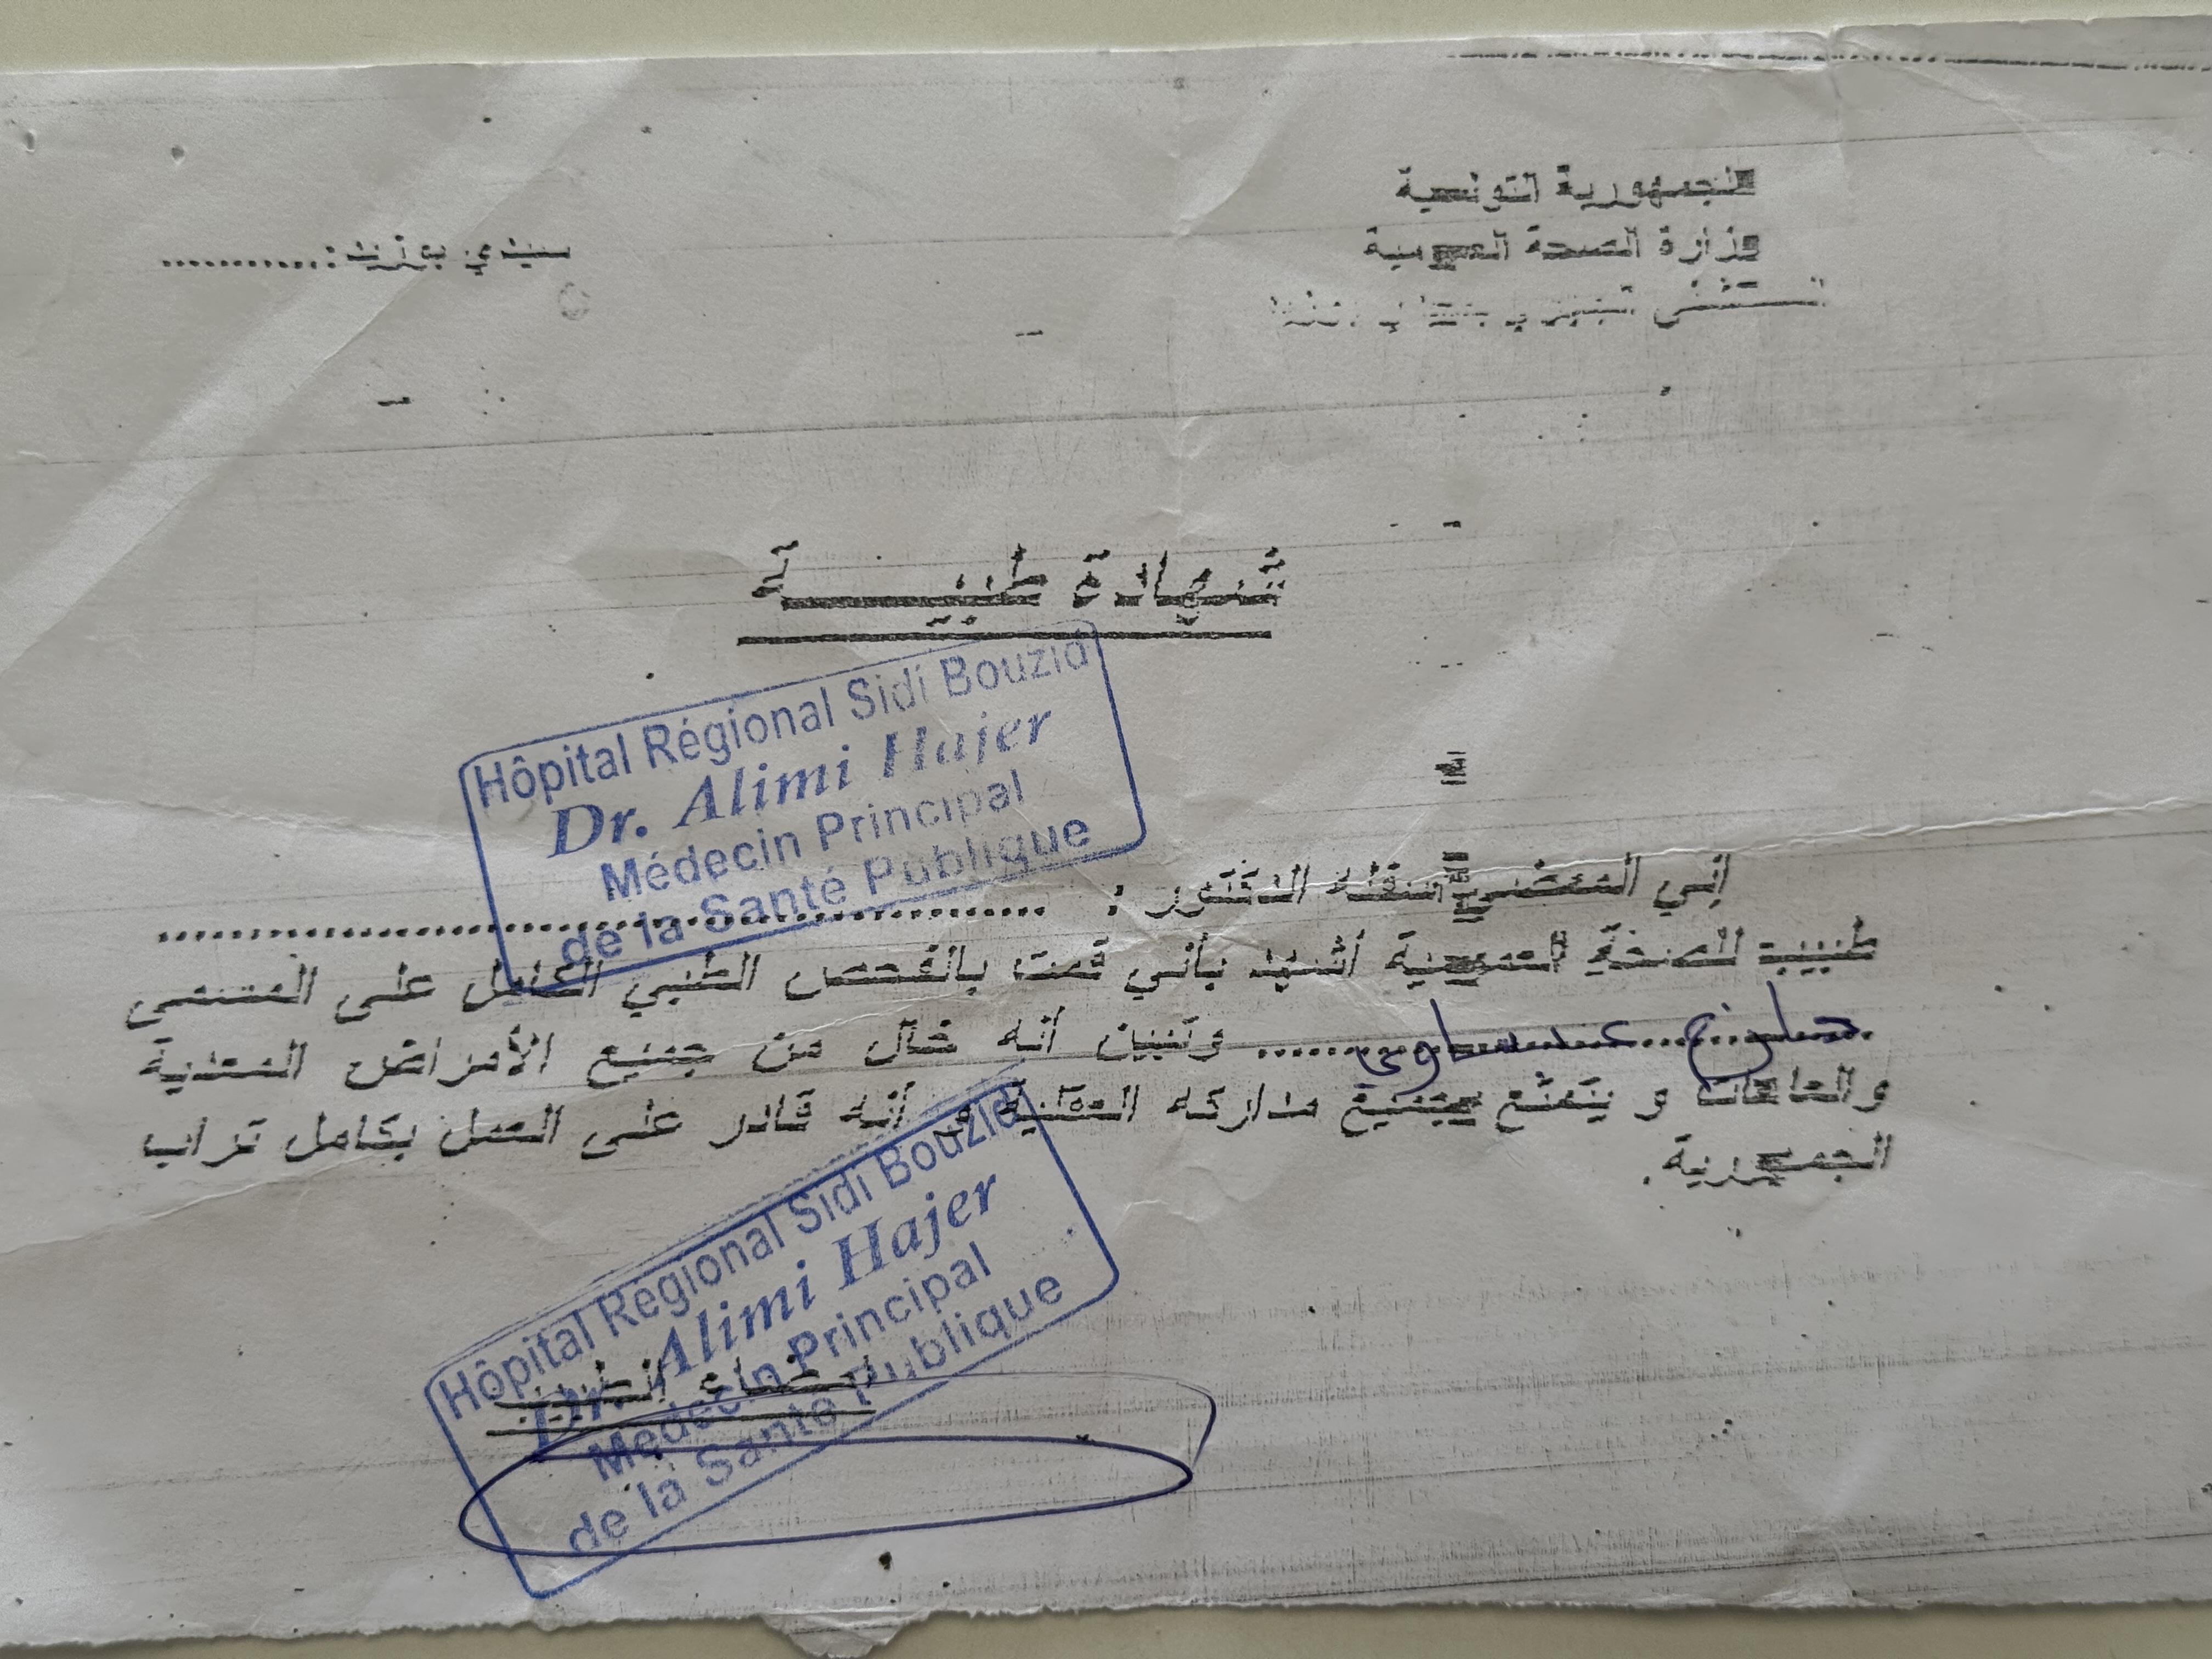 الجمهورية التونسية
وزارة الصحة العمومية
سيدي بوزيد : ............
شهادة طبيــــــة
Hôpital Régional Sidi Bouzid
Dr. Alimi Hajer
Médecin Principal
de la Santé Publique
إني الممضي أسفله الدكتور : ............
طبيب للصحة العمومية أشهد بأني قمت بالفحص الطبي الكامل على المسمى
عيساوي ............ وتبين أنه خال من جميع الأمراض المعدية
والعاهات و يتمتع بجميع مداركه العقلية و أنه قادر على العمل بكامل تراب
الجمهورية .
Hôpital Régional Sidi Bouzid
Dr. Alimi Hajer
Médecin Principal
de la Santé Publique
إمضاء الطبيب